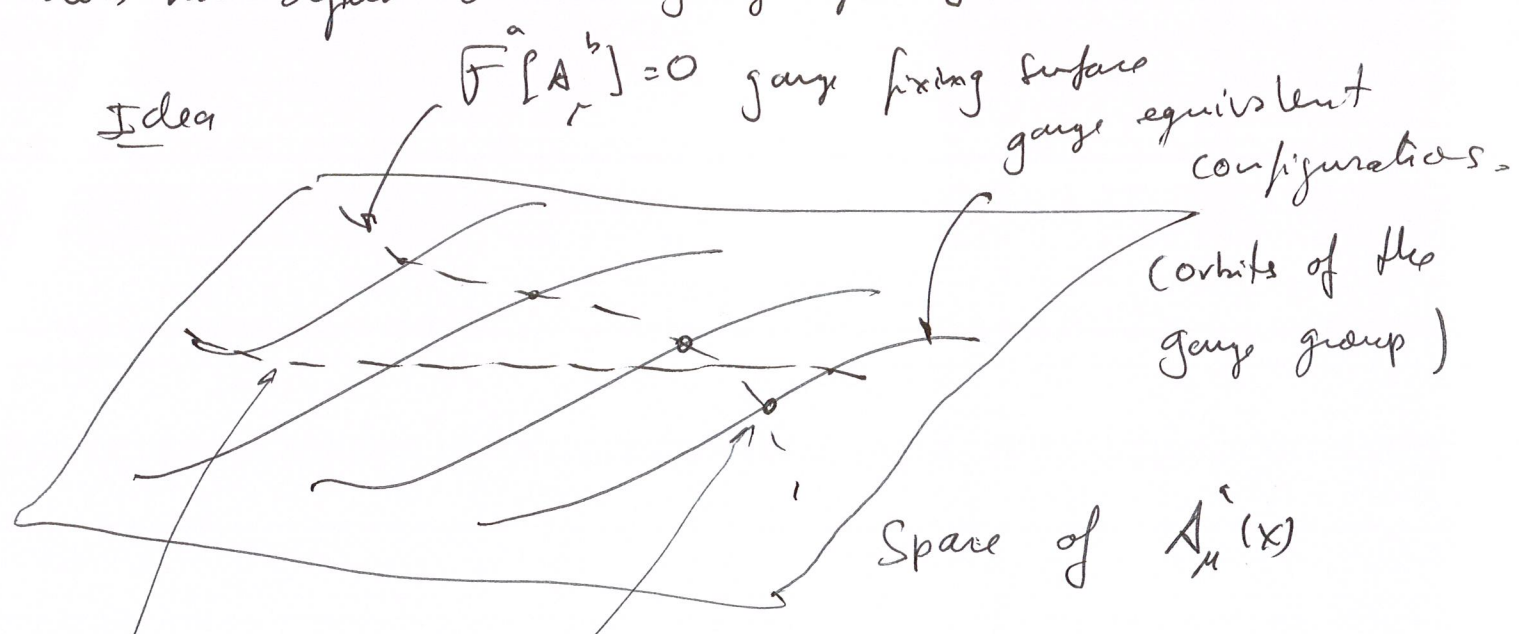 F^a[A_μ^b]=0 gauge fixing surface
Idea
gauge equivalent
configurations.
(orbits of the
gauge group)
Space of A_μ^a(x)